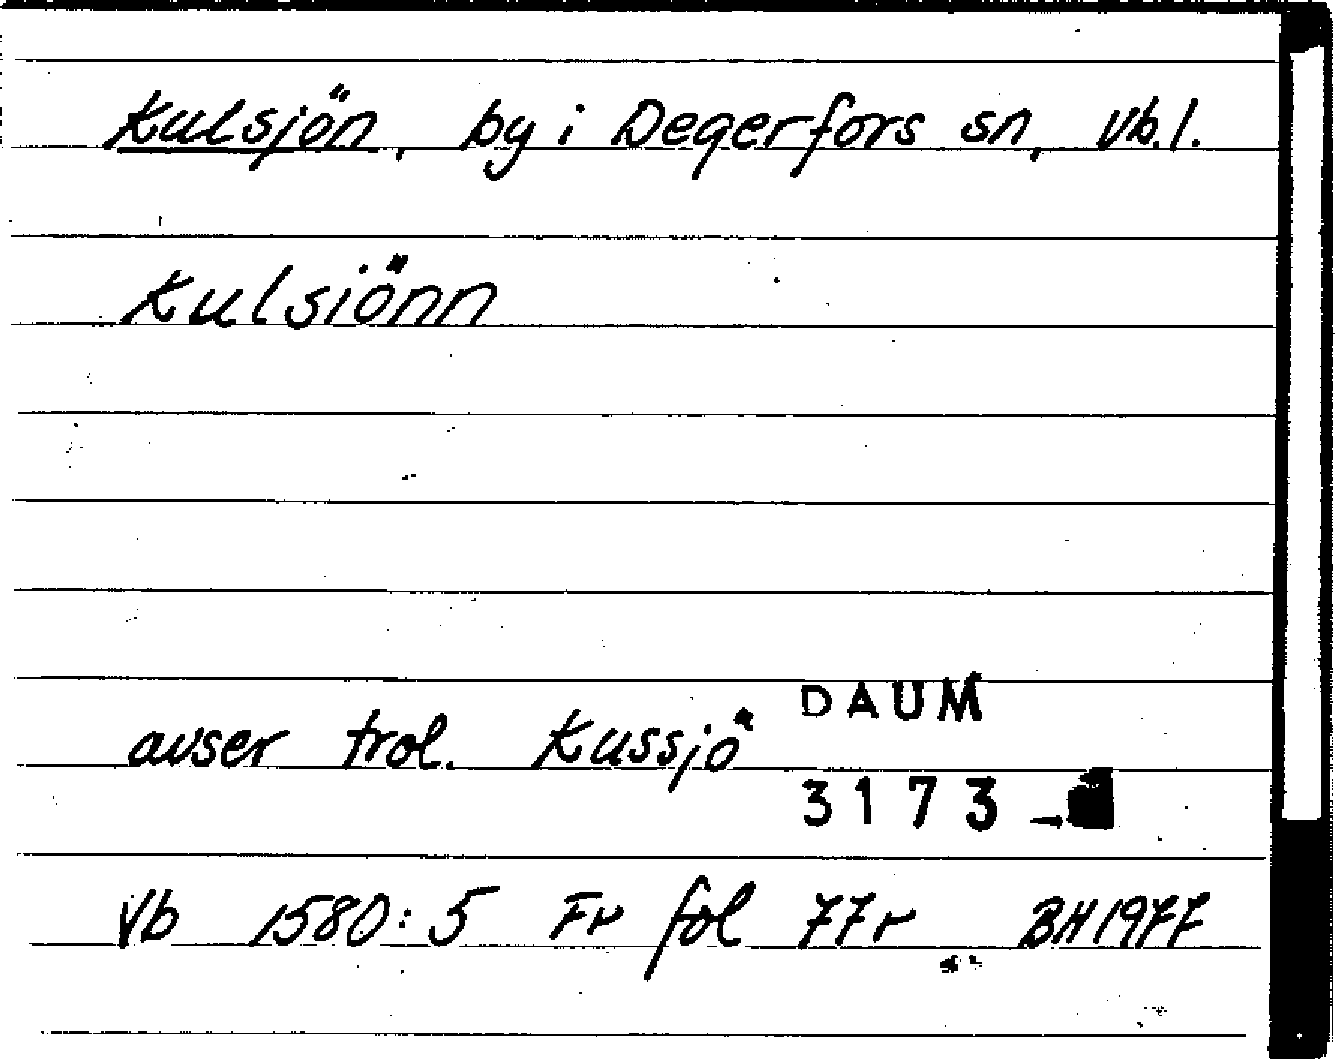 Kulsjön, by i Degerfors sn, Vb.l.
Kulsiönn
avser trol. Kussjö
DAUM
3173
Vb 1580:5 Fr fol 77r BH1977